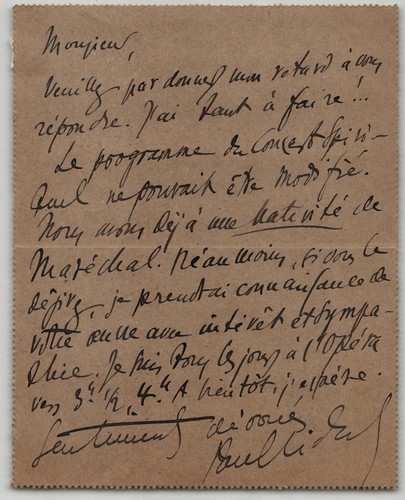 Monsieur,
Veuillez pardonner mon retard à vous
répondre. J'ai tant à faire!..
Le programme du Concert Spiri-
tuel ne pouvait être modifié.
Nous avons déjà une Nativité de
Maréchal. Néanmoins, si vous le
désirez, je prendrai connaissance de
votre œuvre avec intérêt et sympa-
thie. Je suis tous les jours à l'Opéra
vers 3h 1/2, 4h. A bientôt, j'espère.
Sentiments dévoués
Paul Vidal